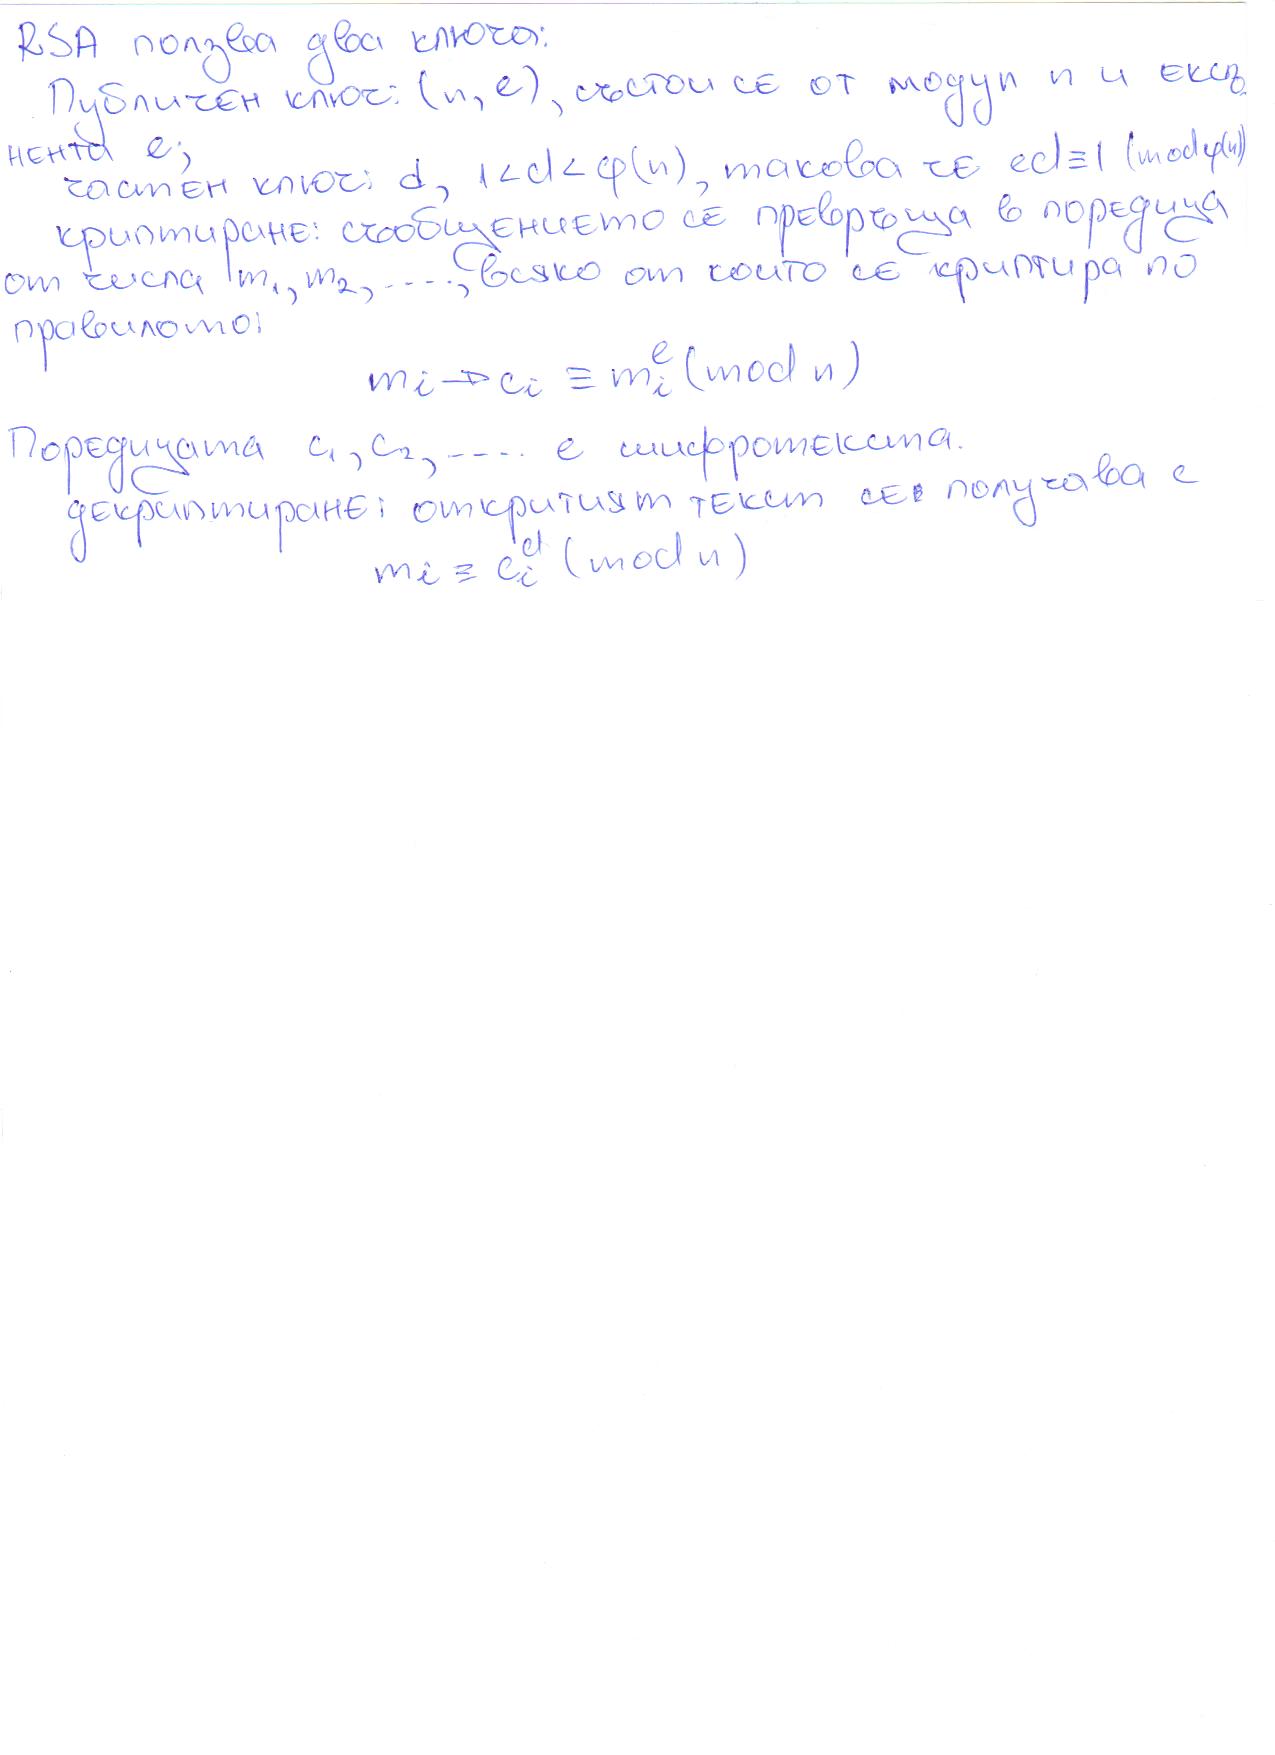 RSA ползва два ключа:
Публичен ключ: (n, e), състои се от модул n и експ
нента e;
частен ключ: d, 1<d<φ(n), такова че ed≡1 (mod φ(n))
криптиране: съобщението се превръща в поредица
от числа m₁, m₂, ...., всяко от които се криптира по
правилото:
mᵢ → cᵢ ≡ mᵢᵉ (mod n)
Поредицата c₁, c₂, .... е шифротекста.
декриптиране: откритият текст се получава с
mᵢ ≡ cᵢᵈ (mod n)